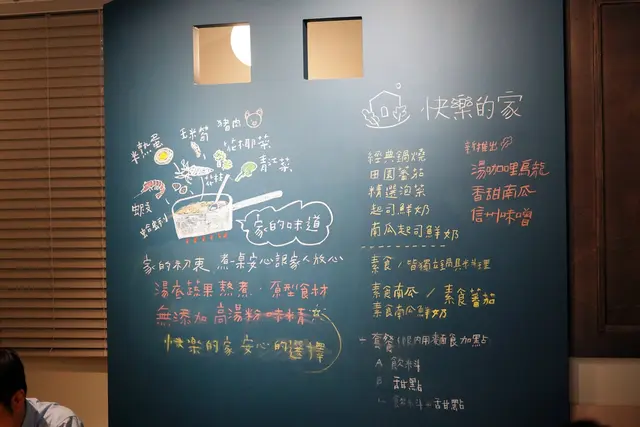 豬肉
玉米筍
花椰菜
半熟蛋
青江菜
蝦
蛤蜊
家的味道
家的約束 煮桌安心讓家人放心
湯底蔬果熬煮·原型食材
無添加高湯粉味精
快樂的家 安心的選擇
快樂的家
經典鍋燒
田園蕃茄
精選泡菜
起司鮮奶
南瓜起司鮮奶
新推出
湯咖哩烏龍
香甜南瓜
信州味噌
素食/皆獨立鍋具料理
素食南瓜/素食蕃茄
素食南瓜鮮奶
套餐(限內用麵食加點)
A 飲料
B 甜點
C 飲料+甜點